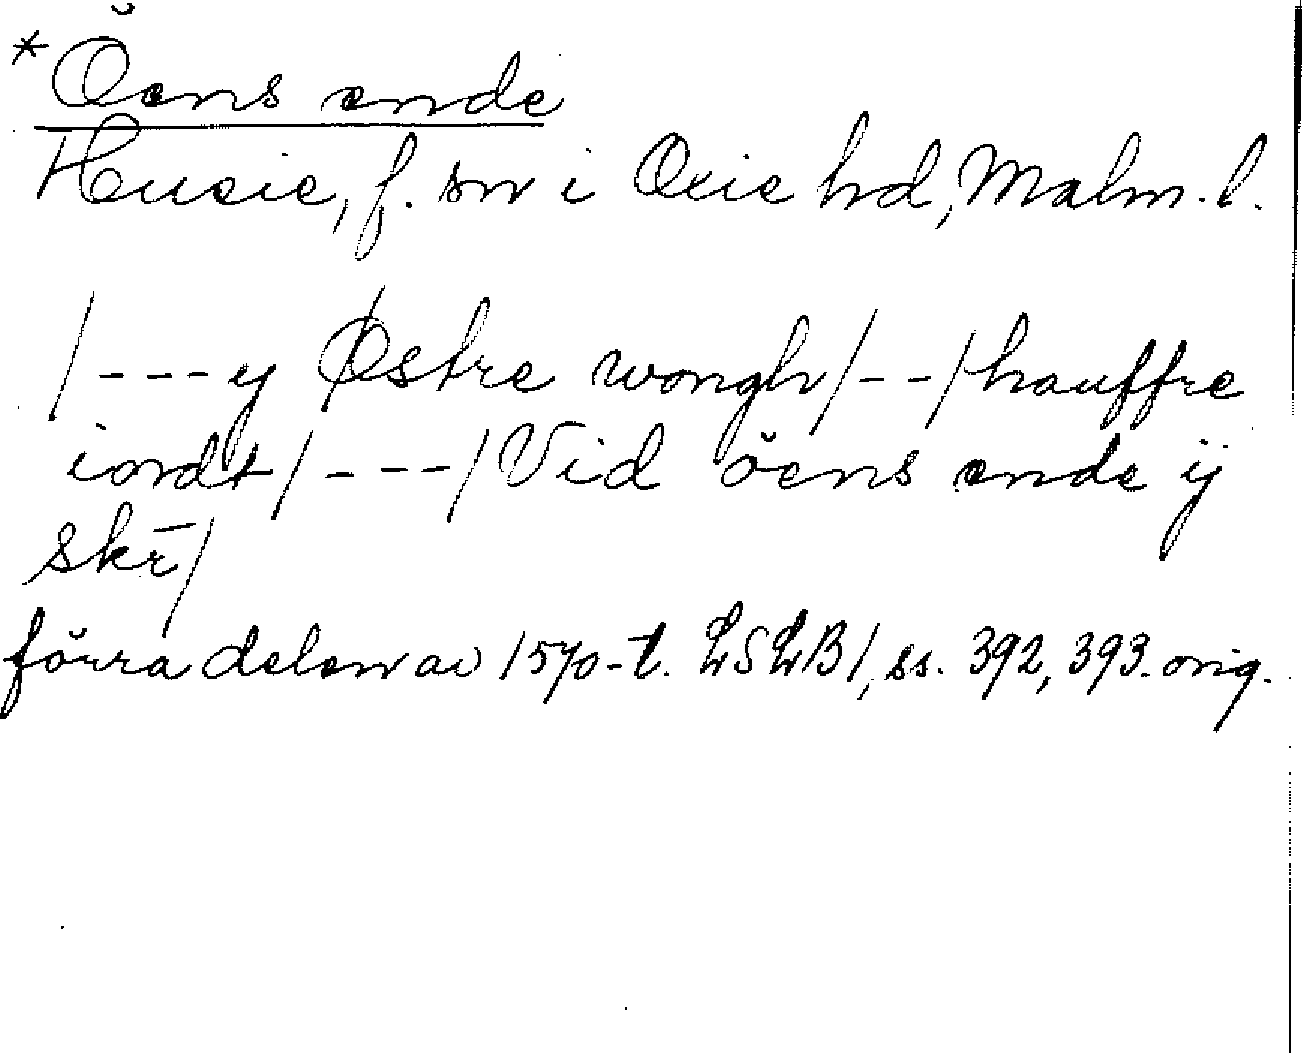 *Öens ende
Husie, f. sn i Oxie hd, Malm. l.
/---y Østre wongh/--/hauffre
iordt/---/Vid öens ende ij
skr̄/
förra delen av 1570-t. LSLB1, ss. 392, 393. orig.